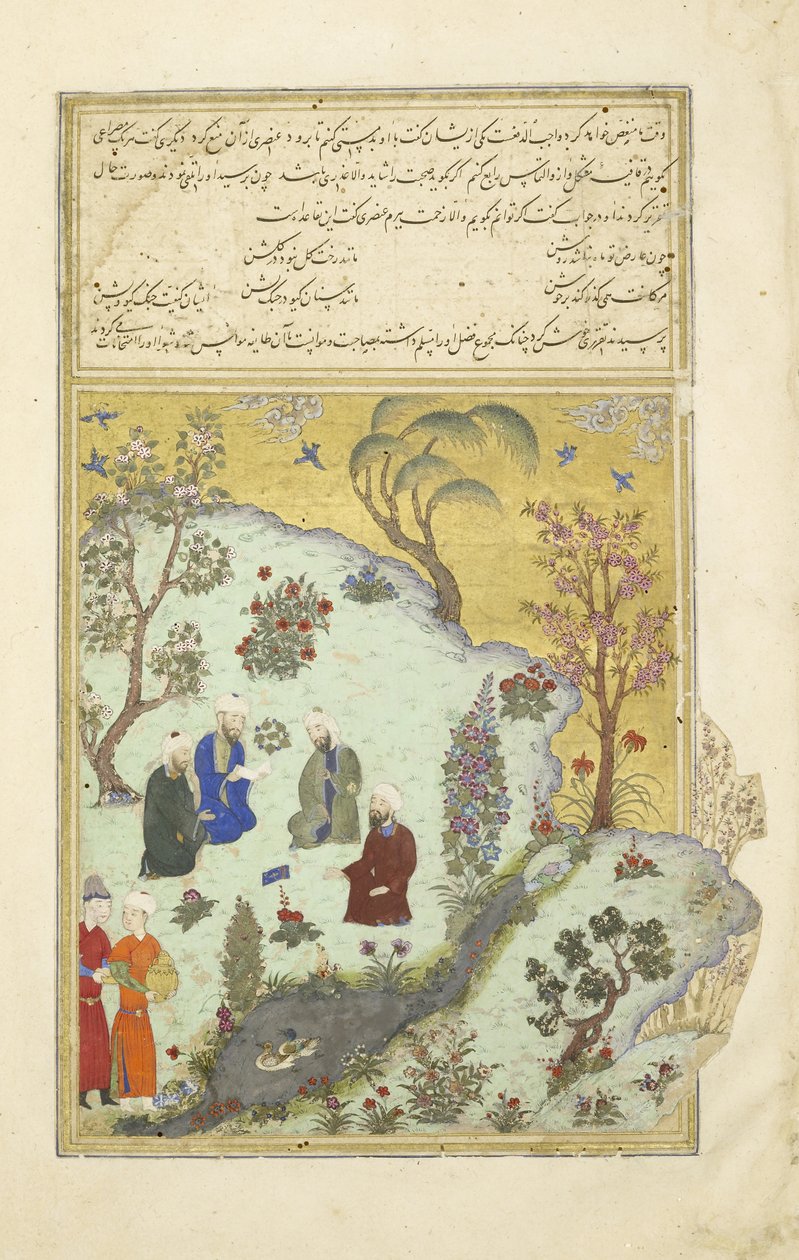 وقت ما منغص خواهد کرد واجب الدفعست یکی از ایشان گفت با او بدمستی کنیم تا برود عنصری از آن منع کرد دیگری گفت هر یک مصراعی
بگوییم در قافیه مشکل و از او التماس رابع کنیم اگر بگوید صحبت را شاید و الا عذری باشد چون برسید او را تلقی نمودند و صورت حال
تقریر کردند او در جواب گفت اگر توانم بگویم و الا زحمت ببرم عنصری گفت این قاعده است
چون عارض تو ماه نباشد روشن مانند رخت گل نبود در گلشن
مژگانت همی گذر کند بر جوشن مانند سنان گیو در جنگ پشن
پرسیدند تقریری خوش کرد چنانک مجموع فضل او را مسلم داشته بمصاحبت و موانست با آن طایفه موانس شد شعرا او را امتحانات می کردند